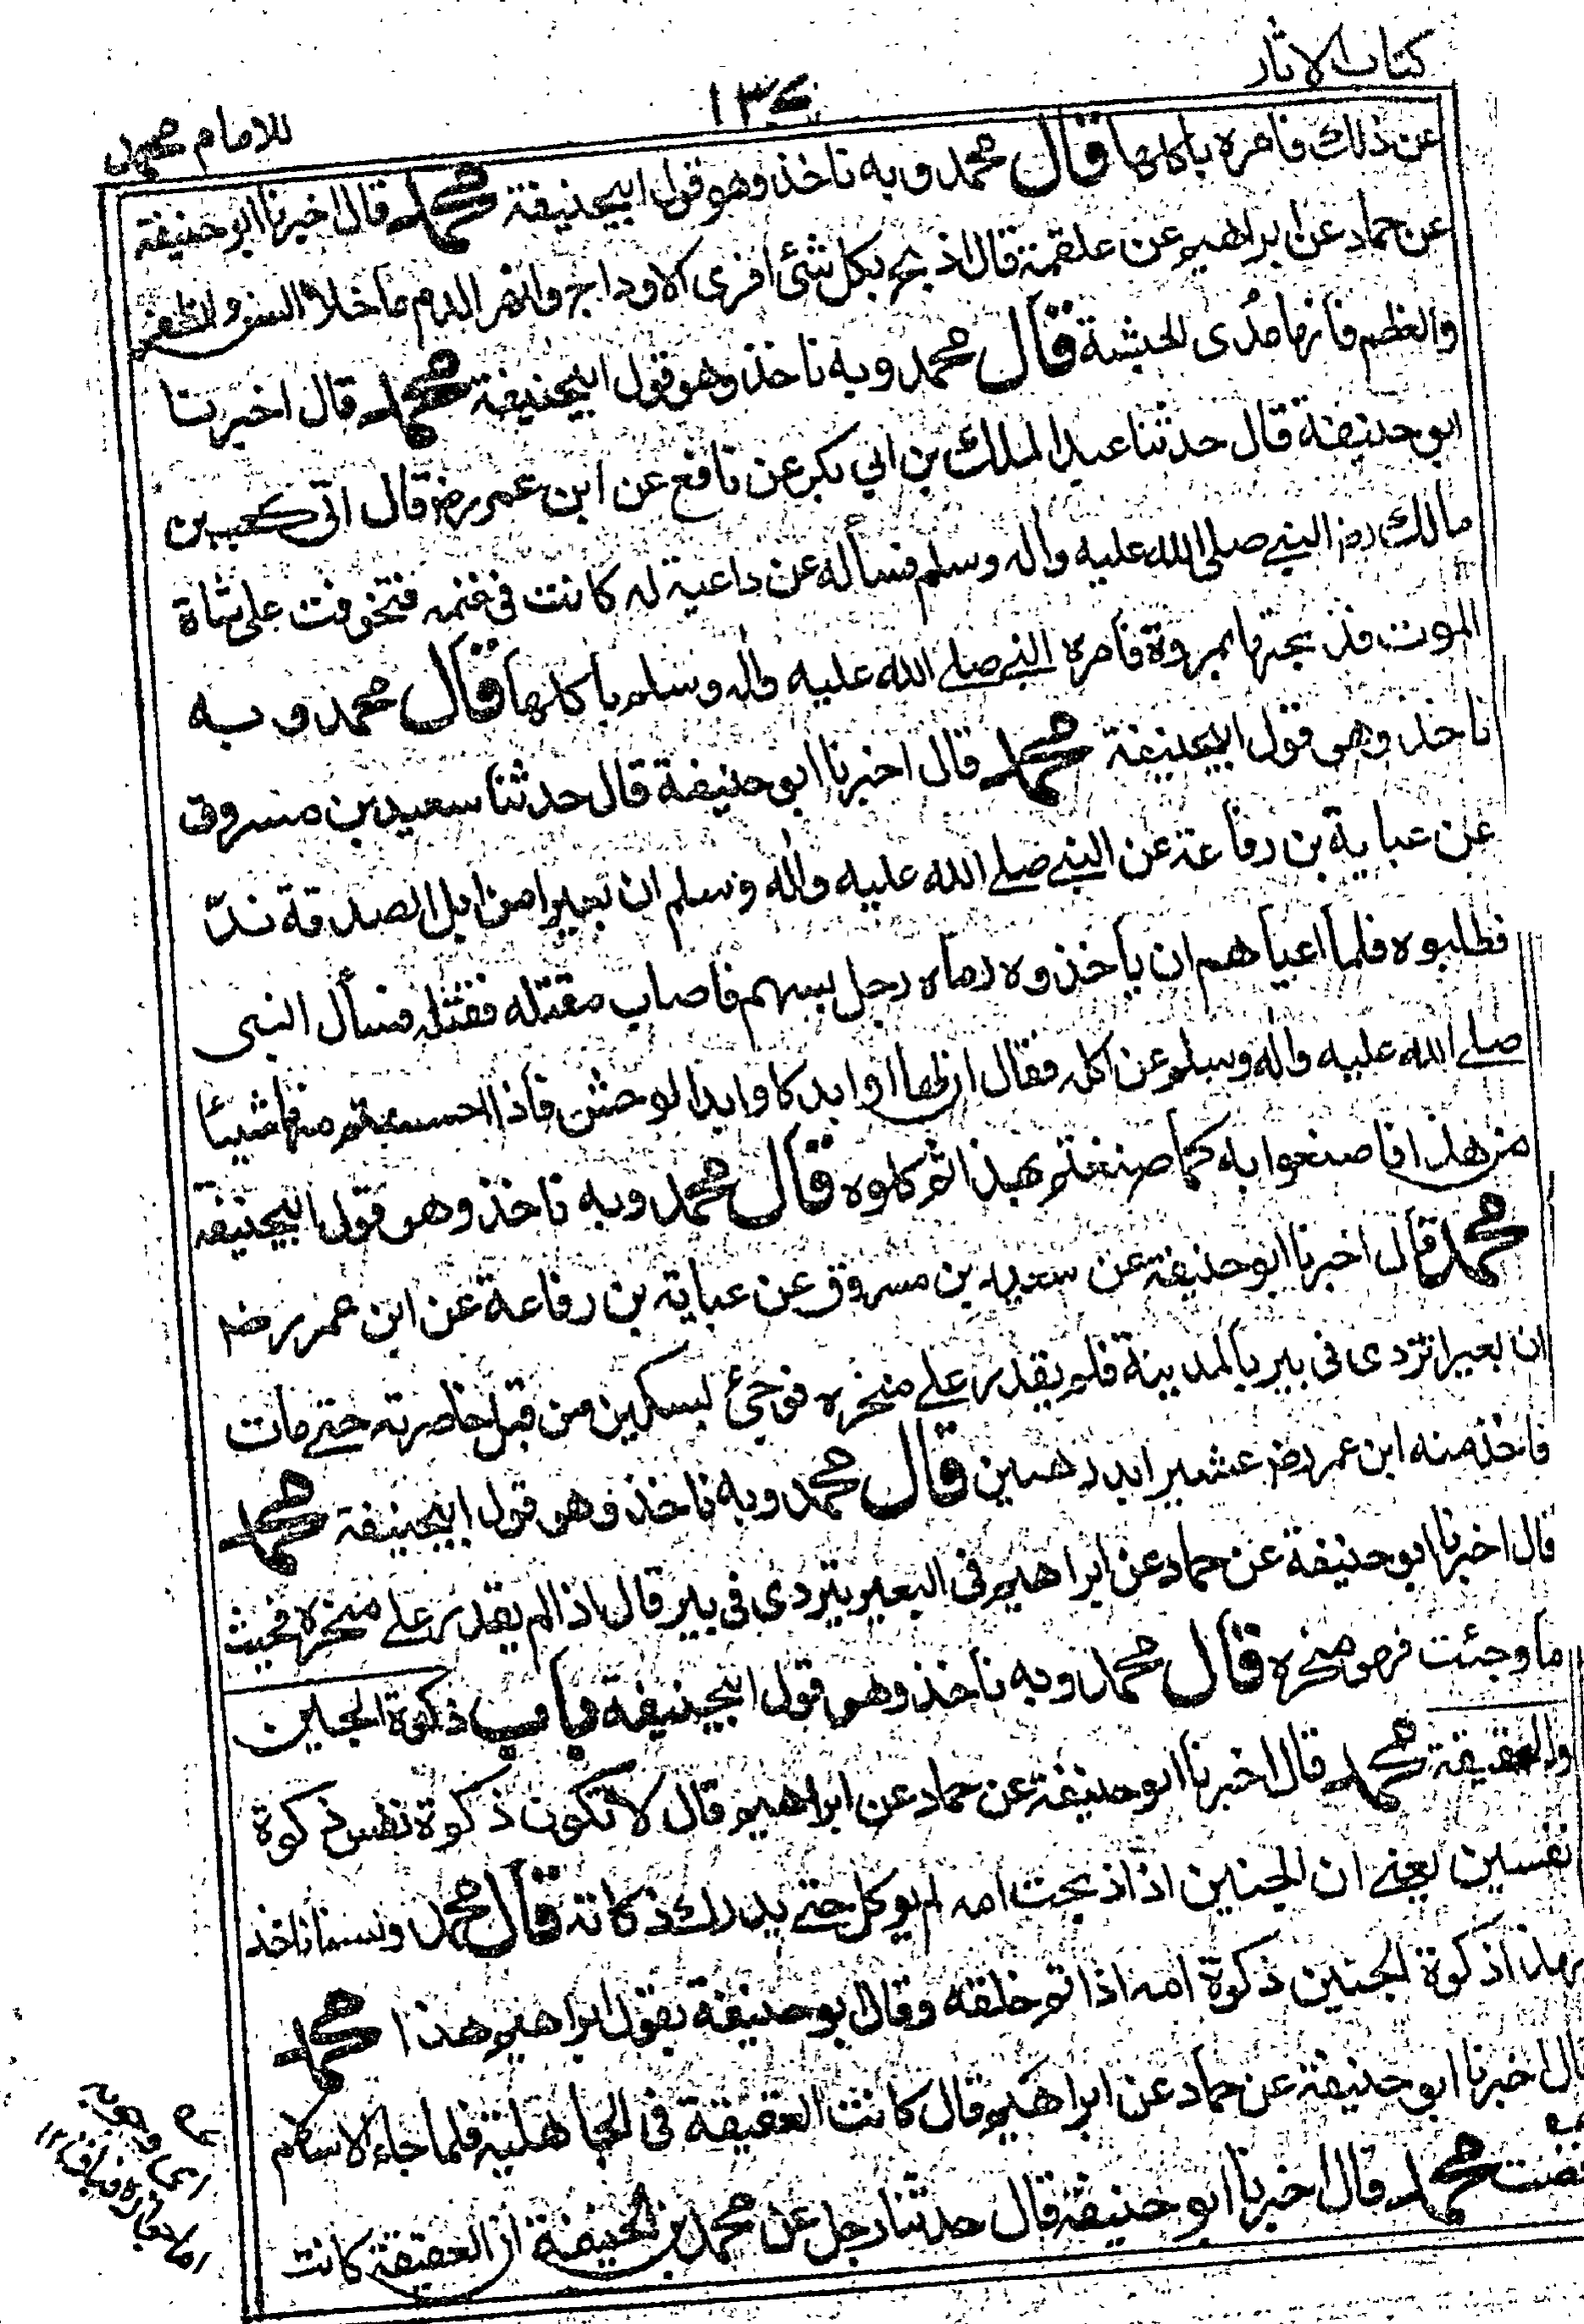 كتاب الاثار
١٣٧
للامام محمد
عن ذلك فامره باكلها قال محمد وبه ناخذ وهو قول ابيحنيفة محمد قال اخبرنا ابو حنيفة
عن حماد عن ابراهيم عن علقمة قال اذبح بكل شئ افرى الاوداج وانهر الدم ما خلا السن والظفر
والعظم فانها مدى الحبشة قال محمد وبه ناخذ وهو قول ابيحنيفة محمد قال اخبرنا
ابو حنيفة قال حدثنا عبد الملك بن ابي بكر عن نافع عن ابن عمر رضـ قال اتى كعب بن
مالك رضـ النبي صلى الله عليه واله وسلم فسأله عن راعية له كانت في غنمه فتخوفت على شاة
الموت فذبحتها بمروة فامره النبي صلے الله عليه واله وسلم باكلها قال محمد وبه
ناخذ وهو قول ابيحنيفة محمد قال اخبرنا ابو حنيفة قال حدثنا سعيد بن مسروق
عن عباية بن رفاعة عن النبي صلے الله عليه واله وسلم ان بعيرا من ابل الصدقة ندّ
فطلبوه فلما اعياهم ان ياخذوه رماه رجل بسهم فاصاب مقتله فقتله فسأل النبي
صلے الله عليه واله وسلم عن اكله فقال ان لها اوابد كاوابد الوحش فاذا احسستم منها شيئا
من هذا فاصنعوا به كما صنعتم بهذا ثم كلوه قال محمد وبه ناخذ وهو قول ابيحنيفة
محمد قال اخبرنا ابو حنيفة عن سعيد بن مسروق عن عباية بن رفاعة عن ابن عمر رضـ
ان بعيرا تردى في بير بالمدينة فلم يقدر علے منحره فوجئ بسكين من قبل خاصرته حتے مات
فاخذ منه ابن عمر رضـ عشيرا بدرهمين قال محمد وبه ناخذ وهو قول ابيحنيفة محمد
قال اخبرنا ابو حنيفة عن حماد عن ابراهيم في البعير يتردى في بير قال اذا لم يقدر علے منحره فحيث
ما وجئت فهو منحره قال محمد وبه ناخذ وهو قول ابيحنيفة باب ذكوة الجنين
والعقيقة محمد قال اخبرنا ابو حنيفة عن حماد عن ابراهيم قال لا تكون ذكوة نفس ذكوة
نفسين يعنے ان الجنين اذا ذبحت امه لم يوكل حتے يدرك ذكاته قال محمد ولسنا ناخذ
بهذا ذكوة الجنين ذكوة امه اذا تم خلقه وقال ابو حنيفة بقول ابراهيم هذا محمد
قال اخبرنا ابو حنيفة عن حماد عن ابراهيم قال كانت العقيقة في الجاهلية فلما جاء الاسلام
رفضت محمد قال اخبرنا ابو حنيفة قال حدثنا رجل عن محمد بن الحنيفة ان العقيقة كانت